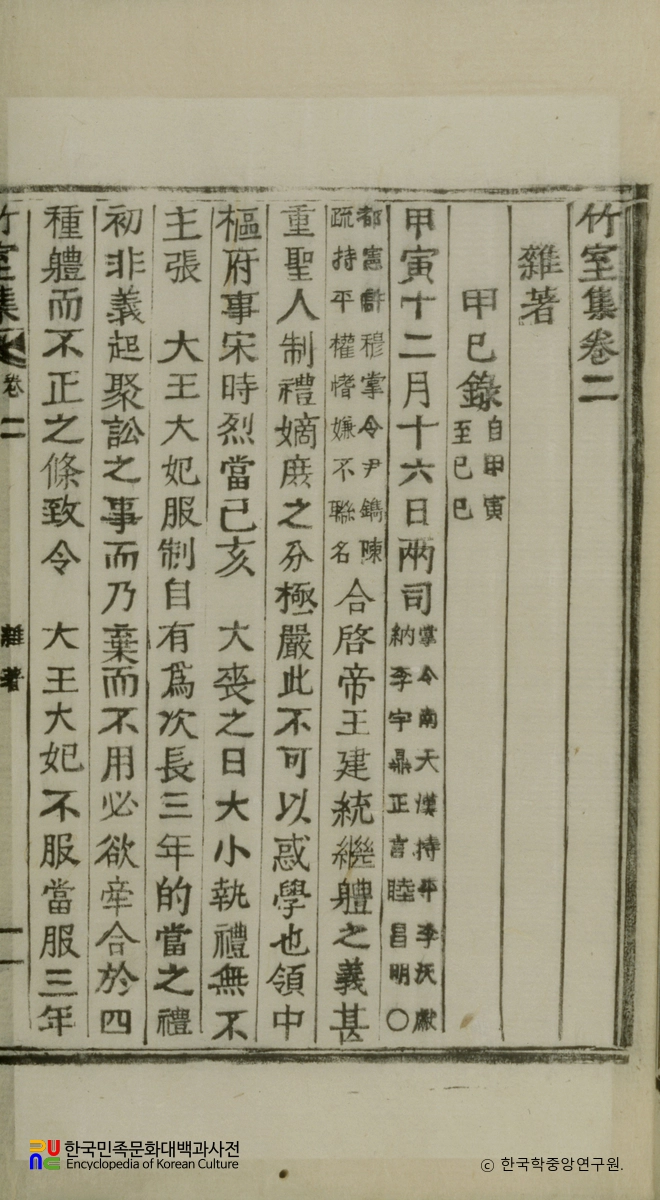 竹室集卷二
雜著
甲巳錄 自甲寅 至己巳
甲寅十二月十六日兩司 掌令南天漢持平李沃獻 納李宇鼎正言睦昌明〇
都憲許穆掌令尹鑴陳 疏持平權愭嫌不聯名 合啓帝王建統繼體之義甚
重聖人制禮嫡庶之分極嚴此不可以惑學也領中
樞府事宋時烈當己亥 大喪之日大小執禮無不
主張 大王大妃服制自有爲次長三年的當之禮
初非義起聚訟之事而乃棄而不用必欲牽合於四
種體而不正之條致令 大王大妃不服當服三年
竹室集 卷二 雜著 一
한국민족문화대백과사전
Encyclopedia of Korean Culture
© 한국학중앙연구원.